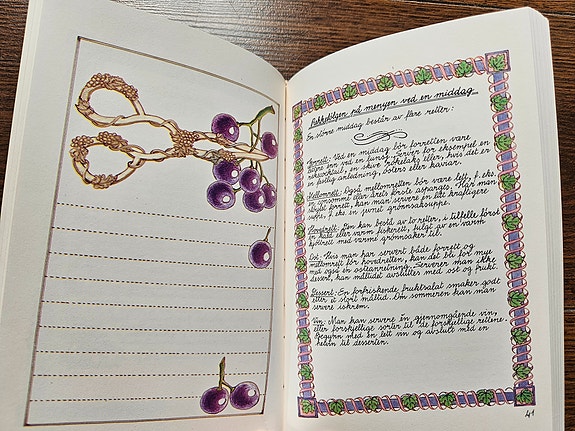 Rekkefølgen på menyen ved en middag
En større middag består av flere retter:
Forrett: Ved en middag bør forretten være
finere enn ved en lunsj. Server for eksempel en
rekecocktail, en skive røkelaks eller, hvis det er
en festlig anledning, østers eller kaviar.
Mellomrett: Også mellomretten bør være lett, f. eks.
en omelett eller årets første asparges. Har man
sløyfet forrett, kan man servere en litt kraftigere
suppe, f. eks. en jevnet grønnsaksuppe.
Hovedrett: Den kan bestå av to retter, i tilfelle først
en kald eller varm fiskerett, fulgt av en varm
kjøttrett med varme grønnsaker til.
Ost: Hvis man har servert både forrett og
mellomrett før hovedretten, kan det bli for mye
med også en osteanretning. Serverer man ikke
dessert, kan måltidet avsluttes med ost og frukt.
Dessert: En forfriskende fruktsalat smaker godt
etter et stort måltid. Om sommeren kan man
servere iskrem.
Vin: Man kan servere én gjennomgående vin,
eller forskjellige sorter til de forskjellige rettene.
Begynn med en lett vin og avslutt med en
hetvin til desserten.
41